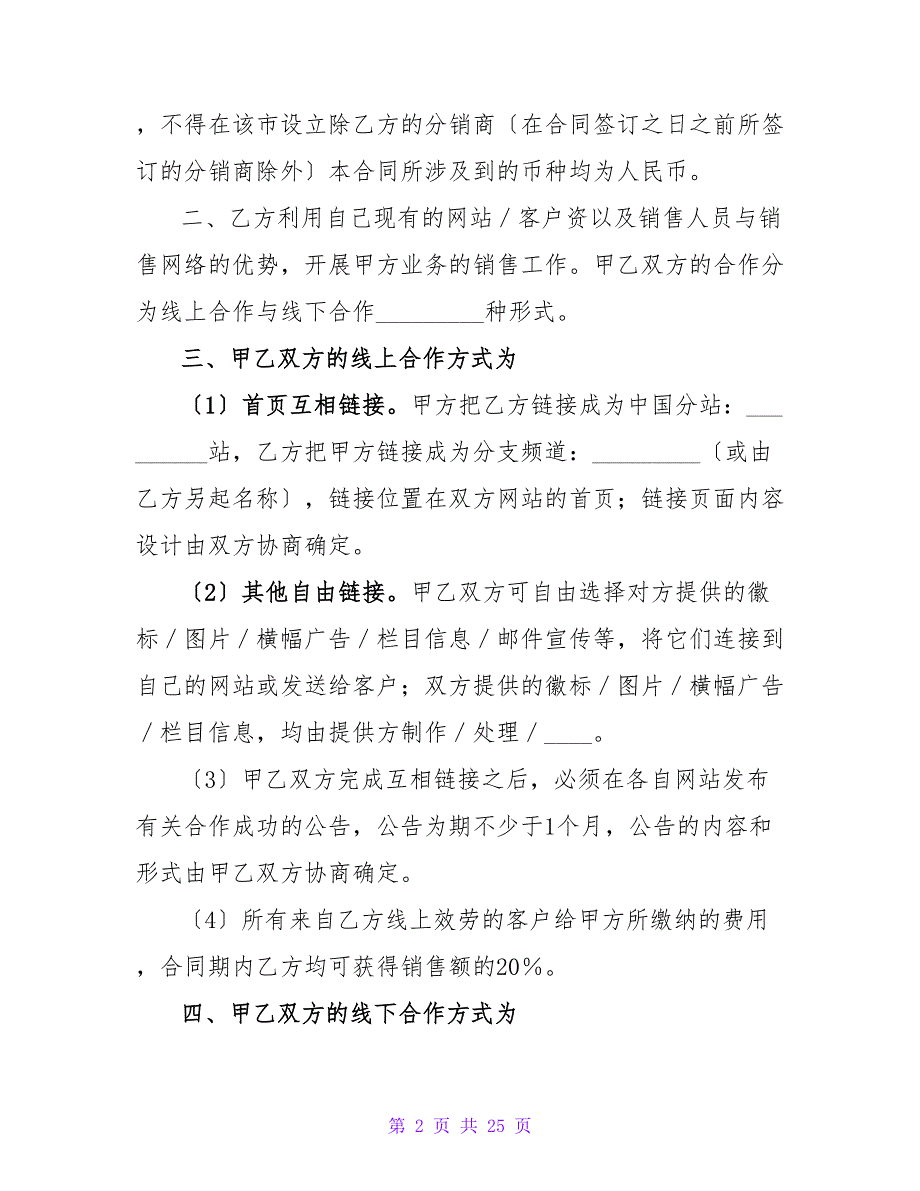 ，不得在该市设立除乙方的分销商〔在合同签订之日之前所签
订的分销商除外〕本合同所涉及到的币种均为人民币。
二、乙方利用自己现有的网站／客户资以及销售人员与销
售网络的优势，开展甲方业务的销售工作。甲乙双方的合作分
为线上合作与线下合作_________种形式。
三、甲乙双方的线上合作方式为
〔1〕首页互相链接。甲方把乙方链接成为中国分站：___
______站，乙方把甲方链接成为分支频道：_________〔或由
乙方另起名称〕，链接位置在双方网站的首页；链接页面内容
设计由双方协商确定。
〔2〕其他自由链接。甲乙双方可自由选择对方提供的徽
标／图片／横幅广告／栏目信息／邮件宣传等，将它们连接到
自己的网站或发送给客户；双方提供的徽标／图片／横幅广告
／栏目信息，均由提供方制作／处理／____。
〔3〕甲乙双方完成互相链接之后，必须在各自网站发布
有关合作成功的公告，公告为期不少于1个月，公告的内容和
形式由甲乙双方协商确定。
〔4〕所有来自乙方线上效劳的客户给甲方所缴纳的费用
，合同期内乙方均可获得销售额的20％。
四、甲乙双方的线下合作方式为
第 2 页 共 25 页